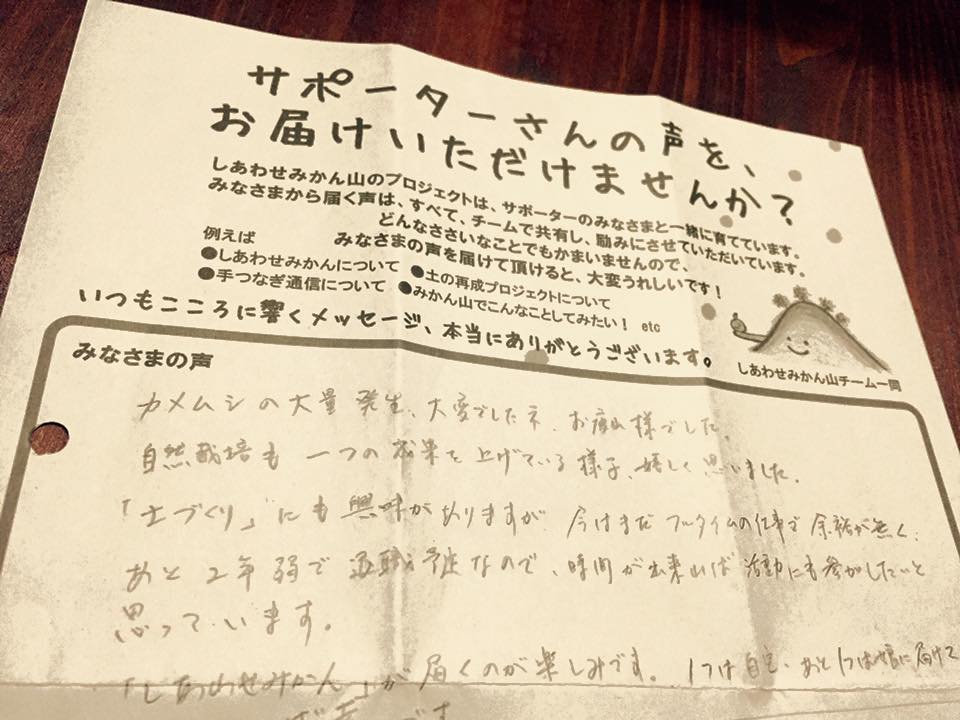 サポーターさんの声を、
お届けいただけませんか?
しあわせみかん山のプロジェクトは、サポーターのみなさまと一緒に育てています。
みなさまから届く声は、すべて、チームで共有し、励みにさせていただいています。
どんなささいなことでもかまいませんので、
みなさまの声を届けて頂けると、大変うれしいです!
例えば
●しあわせみかんについて ●土の再成プロジェクトについて
●手つなぎ通信について ●みかん山でこんなことしてみたい! etc
いつもこころに響くメッセージ、本当にありがとうございます。
しあわせみかん山チーム一同
みなさまの声
カメムシの大量発生、大変でしたネ、お疲れ様でした。
自然栽培も一つの成果を上げている様子、嬉しく思いました。
「土づくり」にも興味がありますが、今はまだフルタイムの仕事で余裕が無く、
あと2年弱で退職予定なので、時間が出来れば活動にも参加したいと
思っています。
「しあわせみかん」が届くのが楽しみです。1つは自宅、あと1つは娘に届けて
です